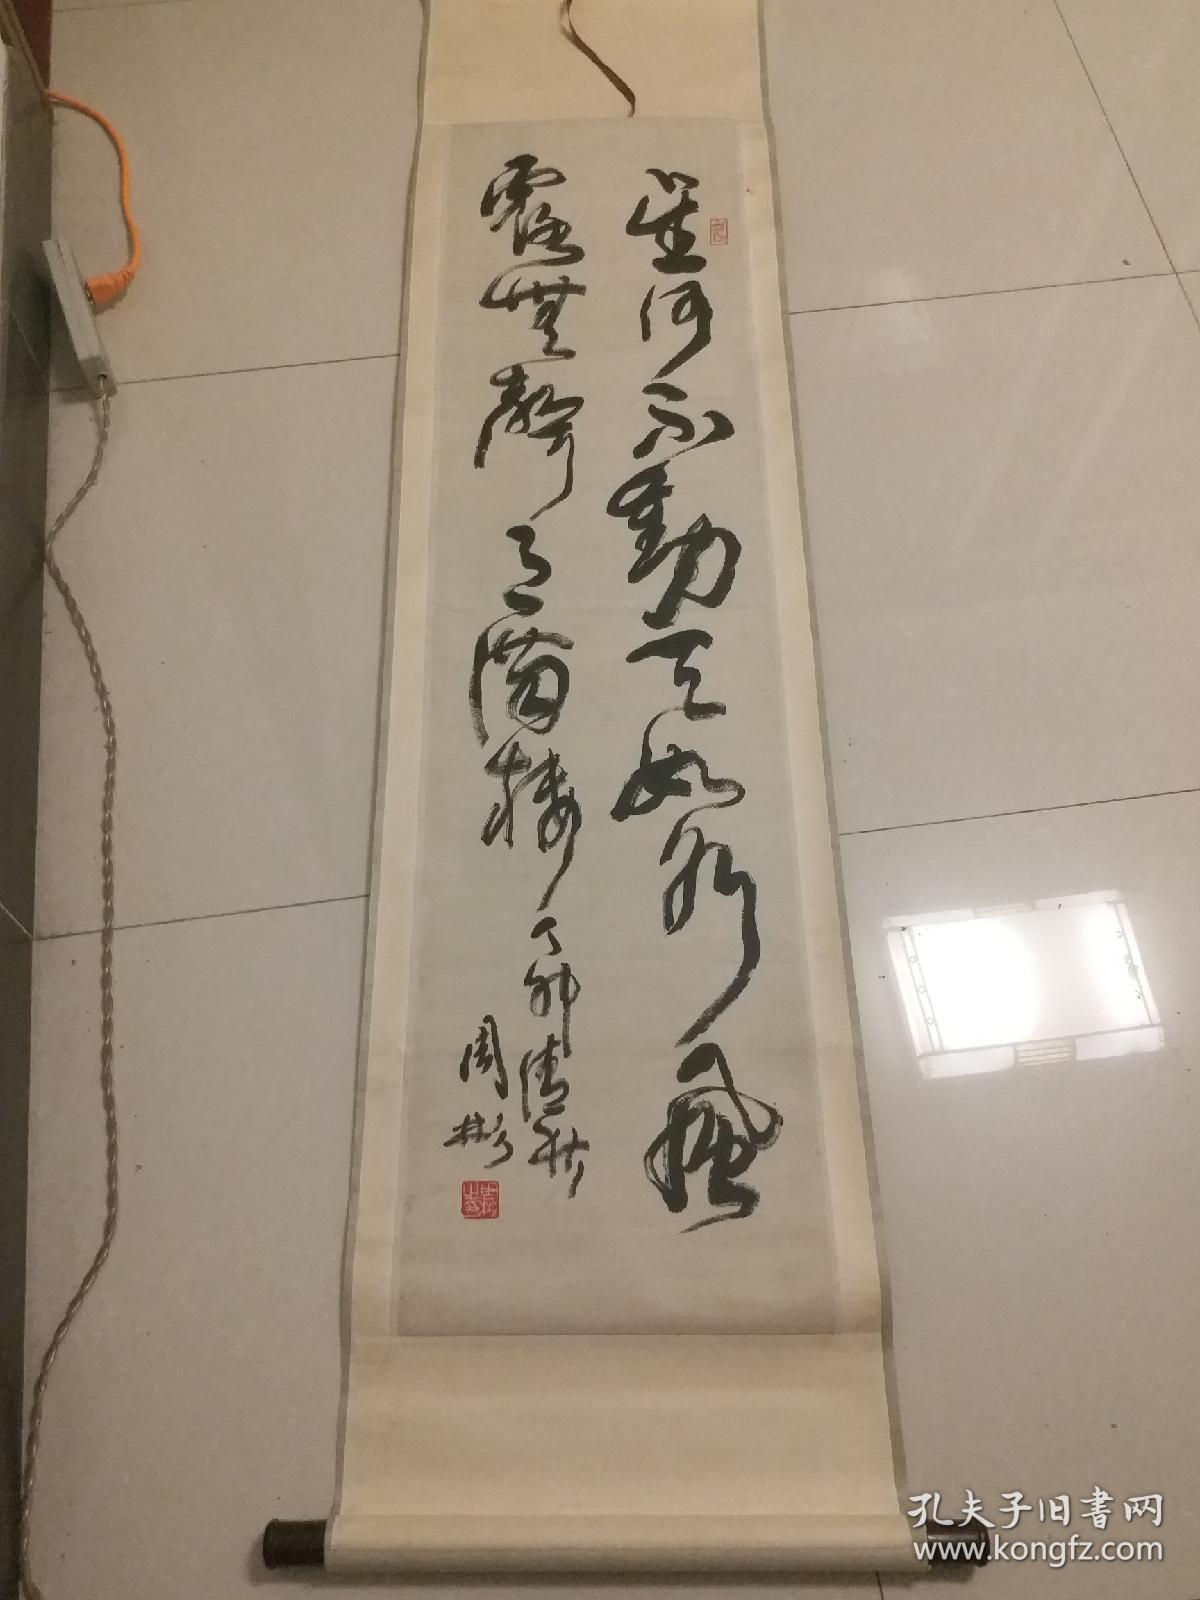 星河不動天如水風
露無聲月滿樓
丁卯清秋
周彬
孔夫子旧書网
www.kongfz.com